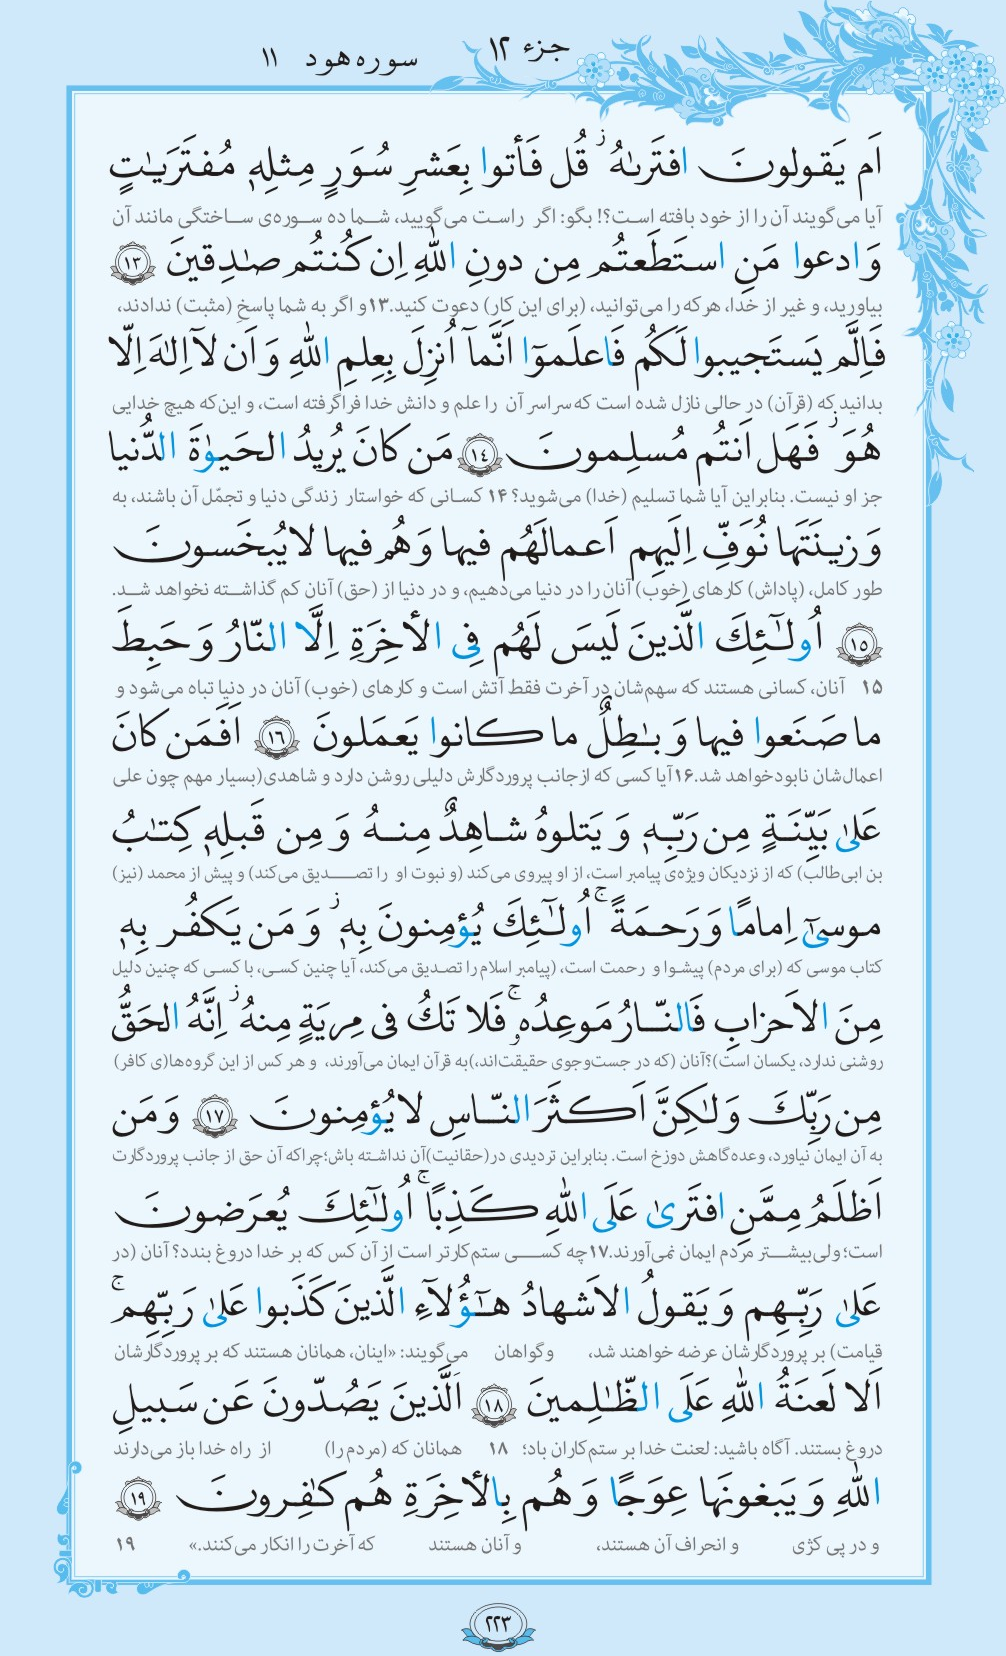 جزء ۱۲
سوره هود ۱۱
اَم يَقولونَ افتَرىٰهُ ۖ قُل فَأتوا بِعَشرِ سُوَرٍ مِثلِهٖ مُفتَرَيـٰتٍ
آیا می‌گویند آن را از خود بافته است؟! بگو: اگر راست می‌گویید، شما ده سوره‌ی ساختگی مانند آن
وَ ادعوا مَنِ استَطَعتُم مِن دونِ اللّٰهِ اِن كُنتُم صـٰدِقينَ ﴿١٣﴾
بیاورید، و غیر از خدا، هرکه را می‌توانید، (برای این کار) دعوت کنید.۱۳ و اگر به شما پاسخ (مثبت) ندادند،
فَاِلَّم يَستَجيبوا لَكُم فَاعلَموٓا اَنَّمآ اُنزِلَ بِعِلمِ اللّٰهِ وَ اَن لآ اِلٰهَ اِلّا
بدانید که (قرآن) در حالی نازل شده است که سراسر آن را علم و دانش خدا فراگرفته است، و این‌که هیچ خدایی
هُوَ ۖ فَهَل اَنتُم مُسلِمونَ ﴿١٤﴾ مَن كانَ يُريدُ الحَيوٰةَ الدُّنيا
جز او نیست. بنابراین آیا شما تسلیم (خدا) می‌شوید؟ ۱۴ کسانی که خواستار زندگی دنیا و تجمّل آن باشند، به
وَ زينَتَها نُوَفِّ اِلَيهِم اَعمالَهُم فيها وَ هُم فيها لا يُبخَسونَ
طور کامل، (پاداش) کارهای (خوب) آنان را در دنیا می‌دهیم، و در دنیا از (حق) آنان کم گذاشته نخواهد شد.
﴿١٥﴾ اُولـٰٓئِكَ الَّذينَ لَيسَ لَهُم فِى الأخِرَةِ اِلَّا النّارُ وَ حَبِطَ
۱۵ آنان، کسانی هستند که سهم‌شان در آخرت فقط آتش است و کارهای (خوب) آنان در دنیا تباه می‌شود و
ما صَنَعوا فيها وَ بـٰطِلٌ ما كانوا يَعمَلونَ ﴿١٦﴾ اَفَمَن كانَ
اعمال‌شان نابود خواهد شد.۱۶ آیا کسی که از جانب پروردگارش دلیلی روشن دارد و شاهدی(بسیار مهم چون علی
عَلىٰ بَيِّنَةٍ مِن رَبِّهٖ وَ يَتلوهُ شاهِدٌ مِنهُ وَ مِن قَبلِهٖ كِتـٰبُ
بن ابی‌طالب) که از نزدیکان ویژه‌ی پیامبر است، از او پیروی می‌کند (و نبوت او را تصدیق می‌کند) و پیش از محمد (نیز)
موسىٰٓ اِمامًا وَ رَحمَةً ۚ اُولـٰٓئِكَ يُؤمِنونَ بِهٖ ۖ وَ مَن يَكفُر بِهٖ
کتاب موسی که (برای مردم) پیشوا و رحمت است، (پیامبر اسلام را تصدیق می‌کند، آیا چنین کسی، با کسی که چنین دلیل
مِنَ الاَحزابِ فَالنّارُ مَوعِدُهٗ ۚ فَلا تَكُ فى مِريَةٍ مِنهُ ۖ اِنَّهُ الحَقُّ
روشنی ندارد، یکسان است)؟آنان (که در جست‌وجوی حقیقت‌اند،)به قرآن ایمان می‌آورند، و هر کس از این گروه‌ها(ی کافر)
مِن رَبِّكَ وَ لـٰكِنَّ اَكثَرَ النّاسِ لا يُؤمِنونَ ﴿١٧﴾ وَ مَن
به آن ایمان نیاورد، وعده‌گاهش دوزخ است. بنابراین تردیدی در(حقانیت)آن نداشته باش؛چراکه آن حق از جانب پروردگارت
اَظلَمُ مِمَّنِ افتَرىٰ عَلَى اللّٰهِ كَذِبًا ۚ اُولـٰٓئِكَ يُعرَضونَ
است؛ ولی بیشتر مردم ایمان نمی‌آورند.۱۷چه کسی ستم‌کارتر است از آن کس که بر خدا دروغ بندد؟ آنان (در
عَلىٰ رَبِّهِم وَ يَقولُ الاَشهادُ هـٰٓؤُلآءِ الَّذينَ كَذَبوا عَلىٰ رَبِّهِم ۚ
قیامت) بر پروردگارشان عرضه خواهند شد، و گواهان می‌گویند: «اینان، همانان هستند که بر پروردگارشان
اَلا لَعنَةُ اللّٰهِ عَلَى الظّـٰلِمينَ ﴿١٨﴾ اَلَّذينَ يَصُدّونَ عَن سَبيلِ
دروغ بستند. آگاه باشید: لعنت خدا بر ستم‌کاران باد؛ ۱۸ همانان که (مردم را) از راه خدا باز می‌دارند
اللّٰهِ وَ يَبغونَها عِوَجًا وَ هُم بِالأخِرَةِ هُم كـٰفِرونَ ﴿١٩﴾
و در پی کژی و انحراف آن هستند، و آنان هستند که آخرت را انکار می‌کنند.» ۱۹
۲۲۳